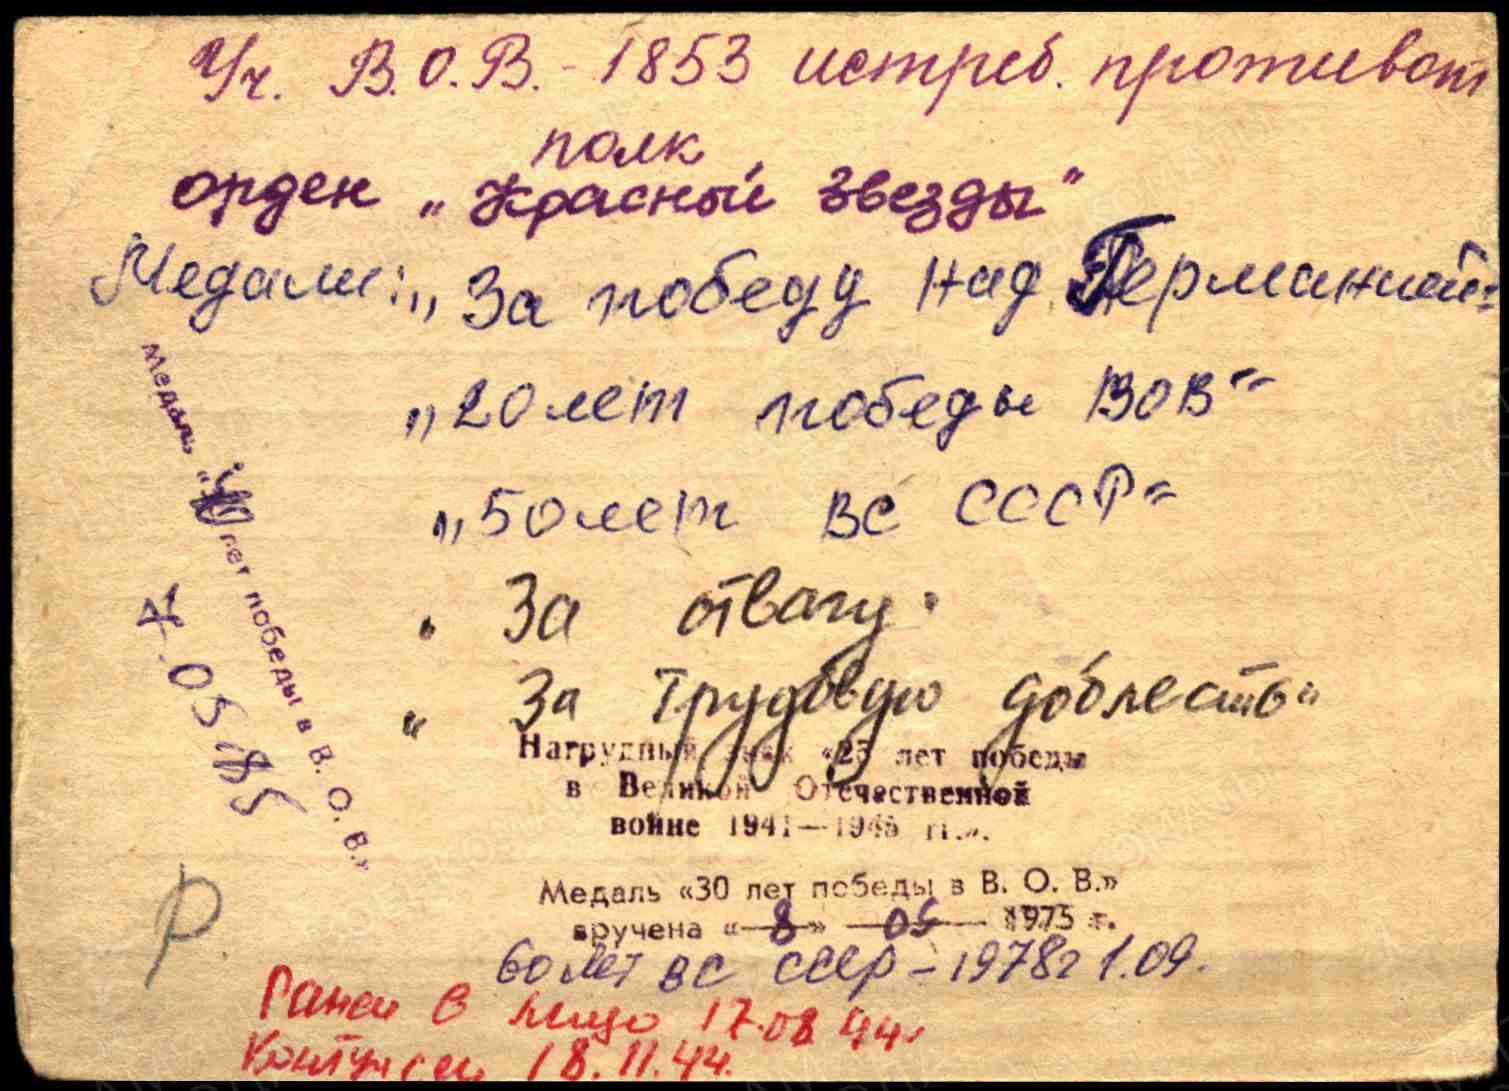 Уч. В.О.В. - 1853 истреб. противот
полк
орден „Красной звезды"
Медали: „За победу над Германией"
„20 лет победы ВОВ"
„50 лет ВС СССР"
" За отвагу "
" За Трудовую доблесть"
Нагрудный знак «25 лет победы
в Великой Отечественной
войне 1941—1945 гг.».
Медаль «30 лет победы в В. О. В.»
вручена «8» 05 1975 г.
60 лет ВС СССР - 1978г 1.09.
Ранен в лицо 17.08.44г
Контужен 18.11.44.
Медаль «40 лет победы в В. О. В.»
7.05.85
Р